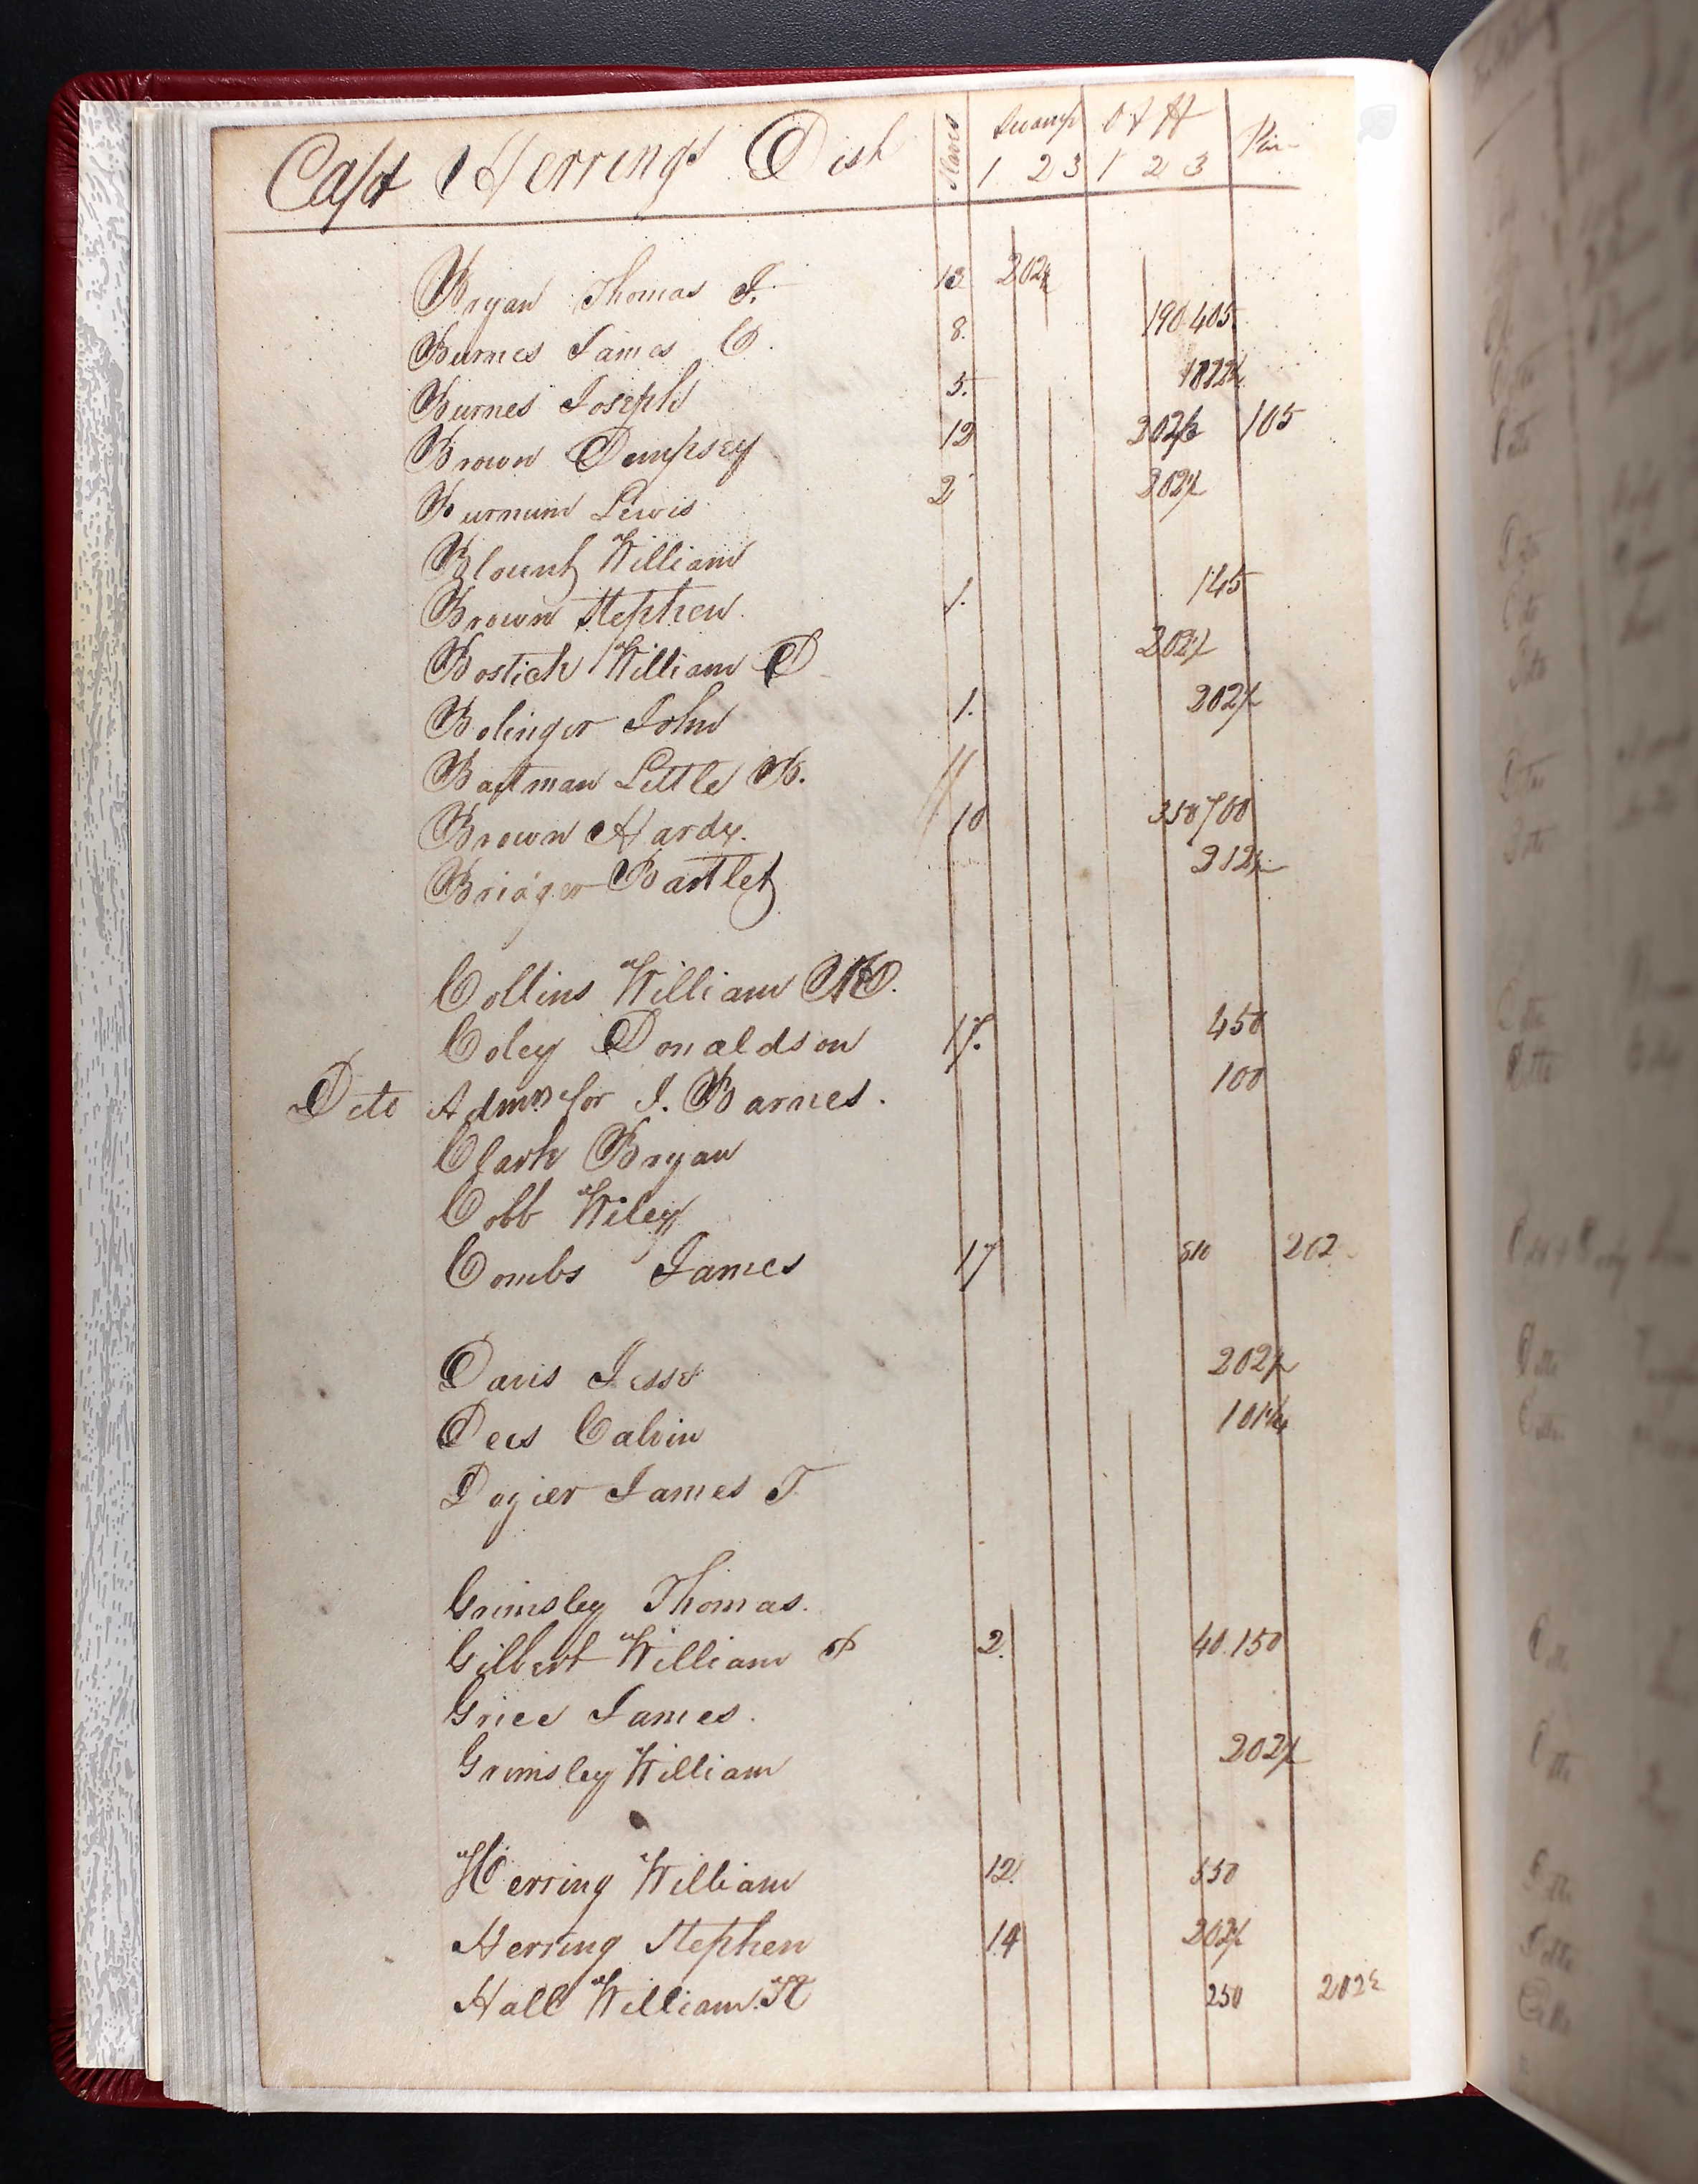 Capt Herrings Dist Slaves Swamp O & H Pine
1 2 3 1 2 3
Bryan Thomas J. 13 202½
Burnes James C. 8. 190 405
Burnes Joseph 5. 182½
Brown Dempsey 12 202½ 105
Burnum Lewis 2 202½
Blount William
Brown Stephen 1. 145
Bostick William D 202½
Bolinger John 1. 202½
Bateman Little B. 11
Brown Hardy. 10 350 700
Bridger Bartlet 212½
Collins William
Coley Donaldson 17. 450
Dito Admr for J. Barnes. 100
Clark Bryan
Cobb Wiley
Combs James 17 510 202
Davis Jesse 202½
Dees Calvin 101¼
Dozier James T
Grimsley Thomas.
Gilbert William 2. 40. 150
Grice James.
Grimsley William 202½
Herring William 12. 550
Herring Stephen 14 202½
Hall William H 250 202½
Ditto
Ditto